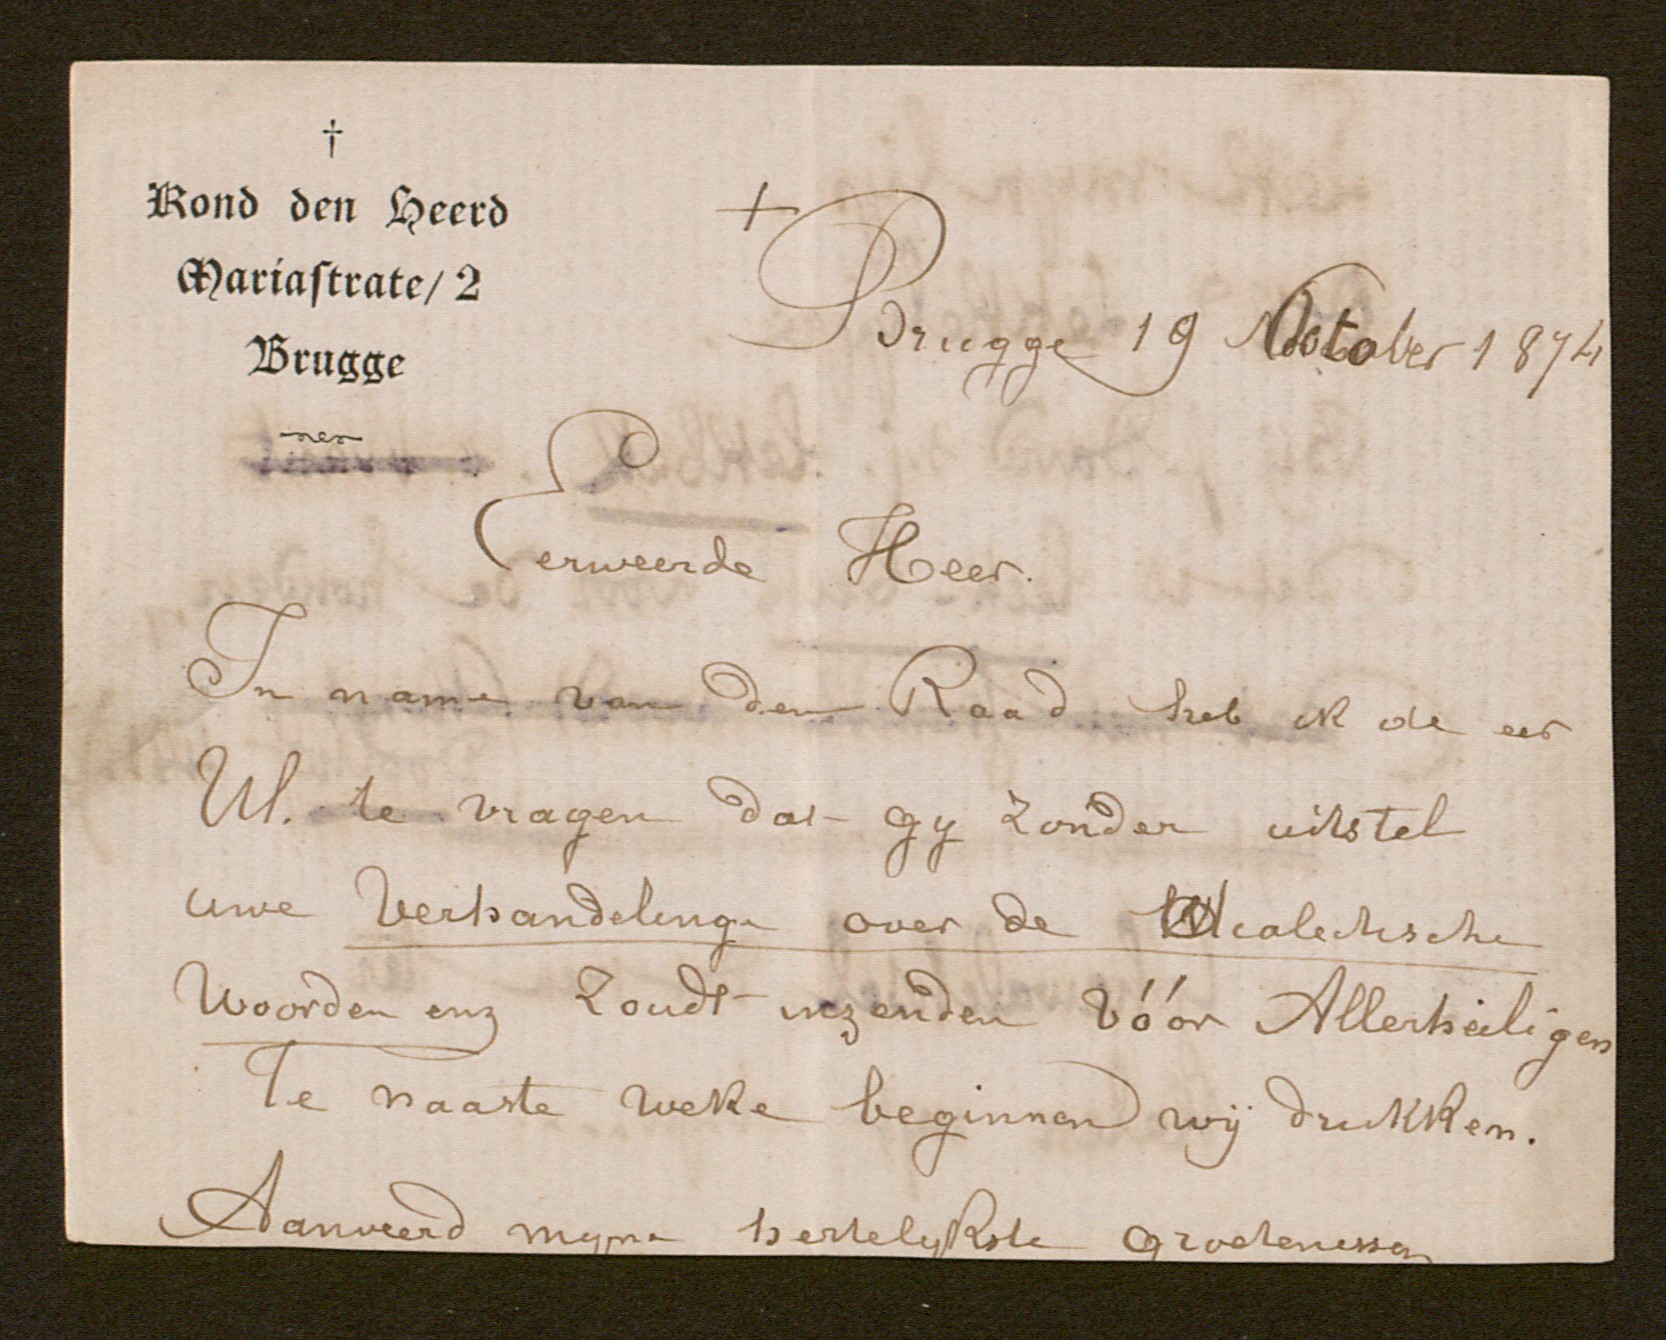 †
Rond den Heerd
Mariastrate/ 2
Brugge
+
Brugge 19 October 1874
Eerweerde Heer.
In name van den Raad heb ik de eer
Ul. te vragen dat gy zonder uitstel
uwe Verhandelinge over de Dialectische
Woorden enz zoudt inzenden vóór Allerheiligen
Te naaste weke beginnen wij drukken.
Aanveerd myne hertelykste groetenessen